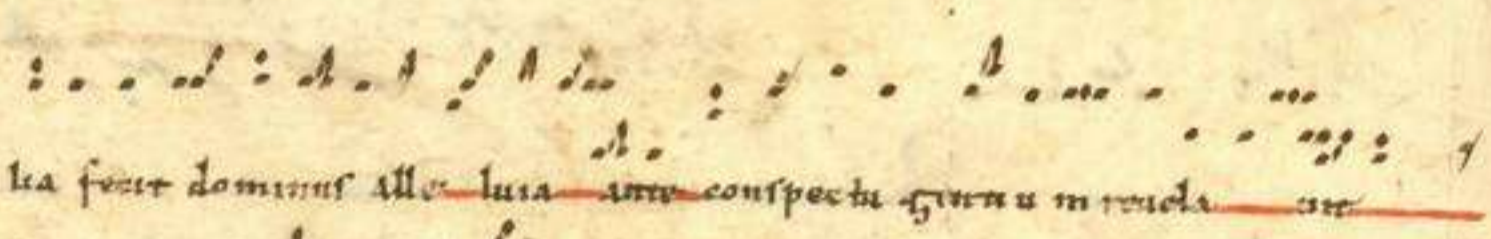 lia fecit dominus alle luia ante conspectū gentiu m reuela uit